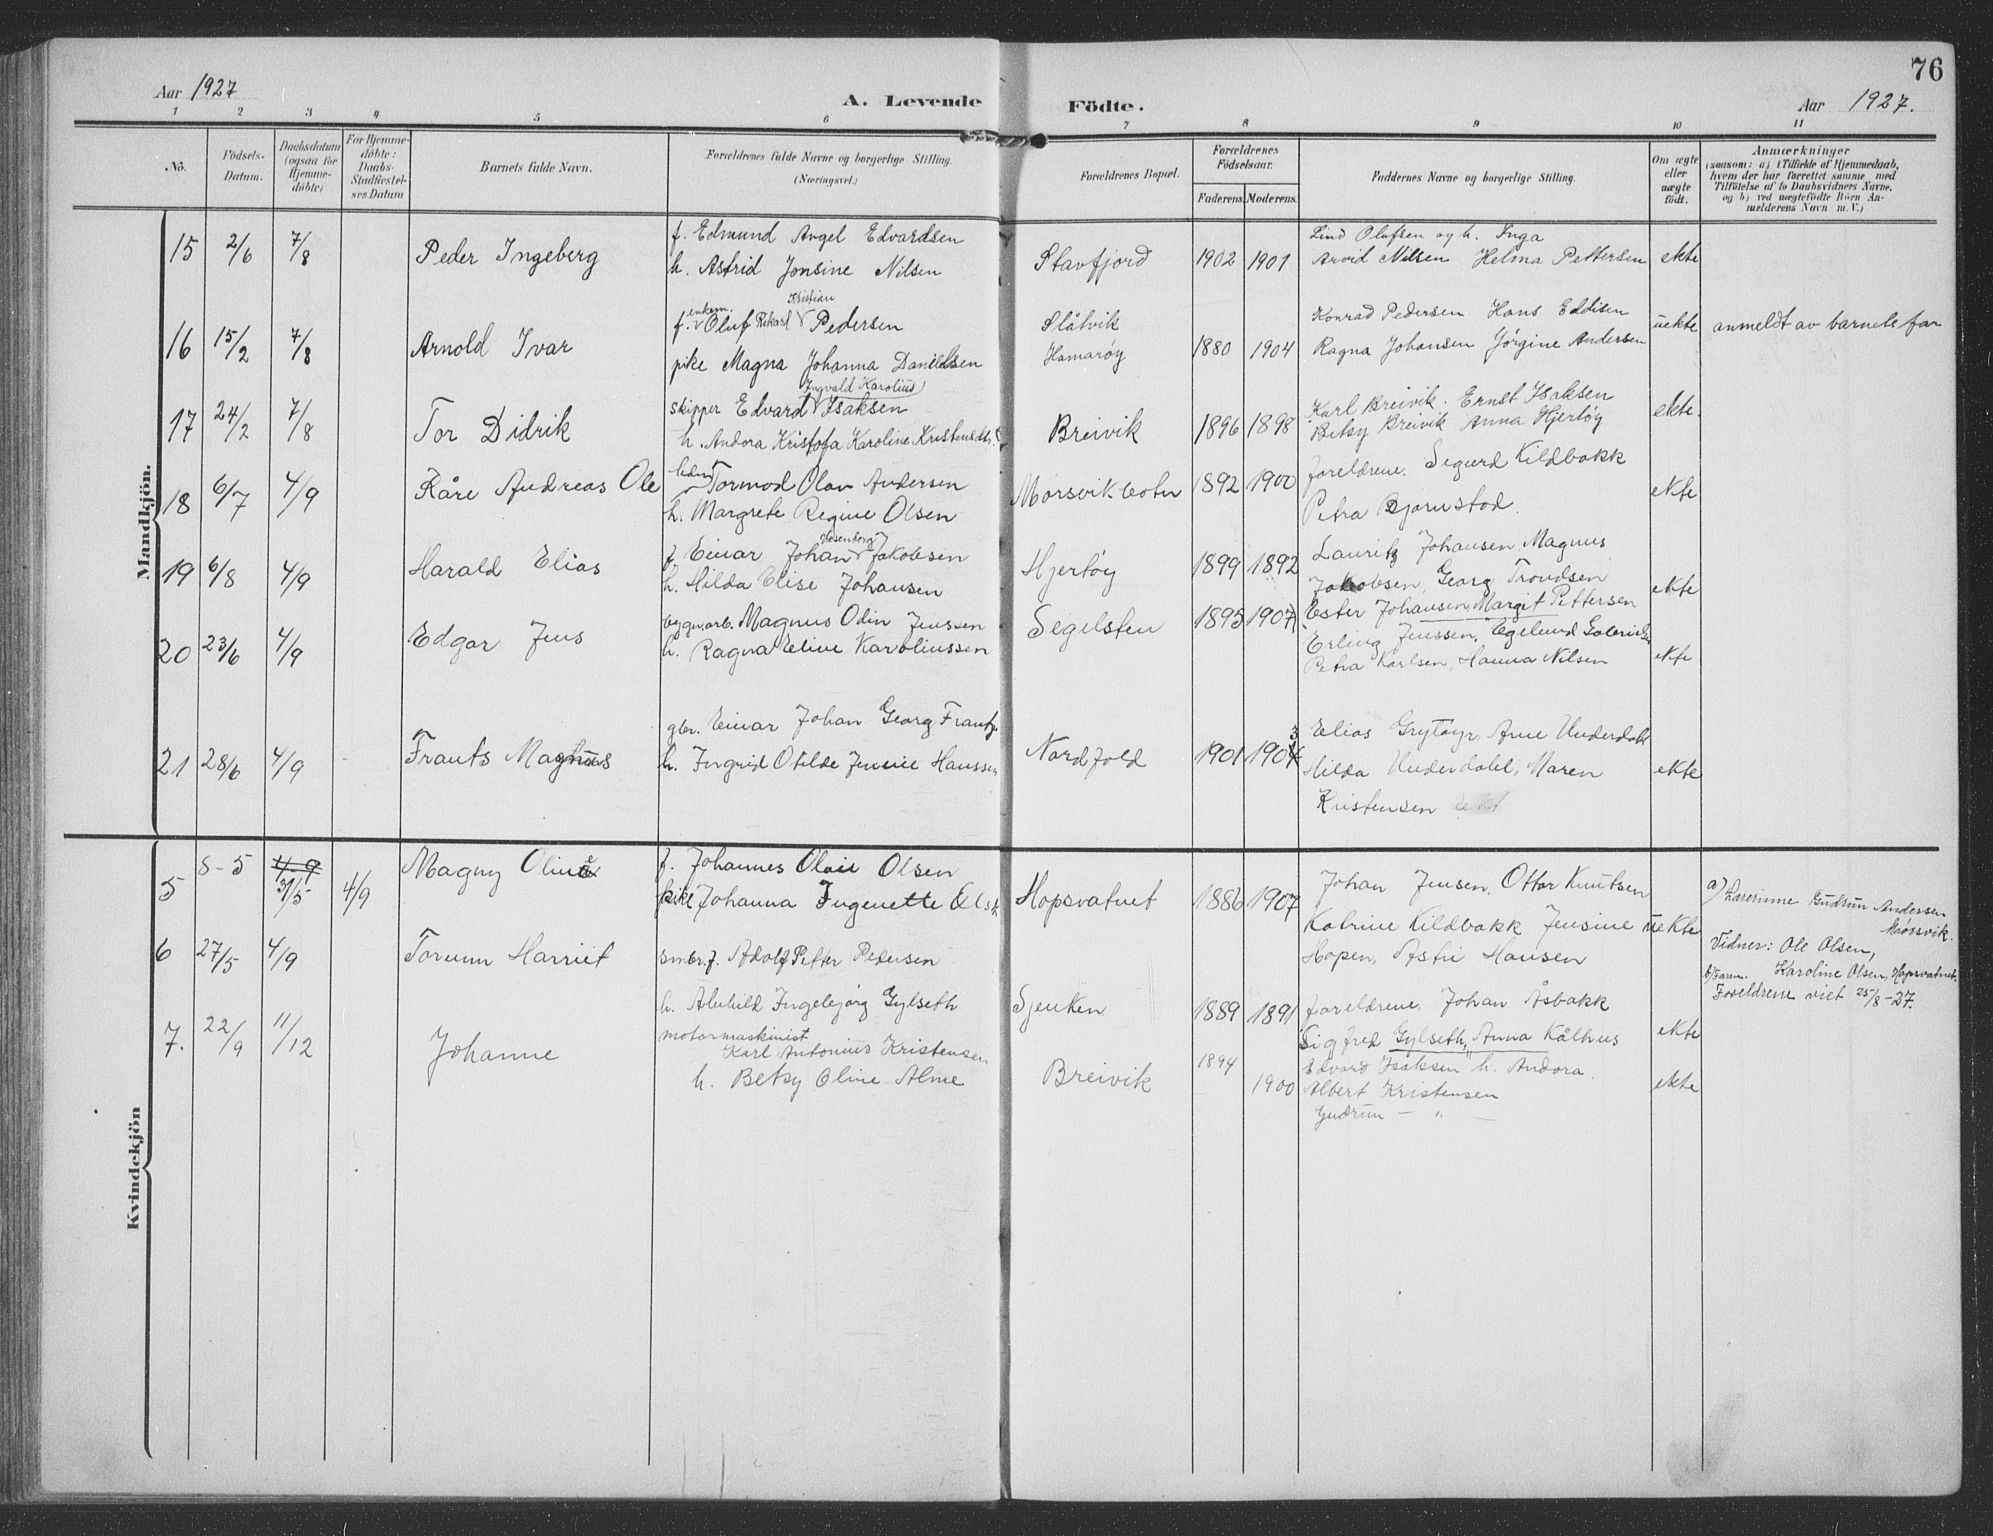 76
Aar 1927
A. Levende Födte.
Aar 1927.
1 2 3 4 5 6 7 8 9 10 11
No.
Födsels-
Datum.
Daabsdatum
(ogsaa for
Hjemme-
döbte)
For Hjemme-
döbte:
Daabs-
Stadfæstel-
ses Datum
Barnets fulde Navn.
Forældrenes fulde Navne og borgerlige Stilling.
(Næringsvei.)
Forældrenes Bopæl.
Forældrenes
Födselsaar.
Faderens. Moderens.
Faddernes Navne og borgerlige Stilling.
Om ægte
eller
uægte
födt.
Anmærkninger
(saasom: a) i Tilfælde af Hjemmedaab,
hvem der har forrettet samme med
Tilföielse af to Daabsvidners Navne,
og b) ved uægtefödte Börn An-
melderens Navn m. V.)
Mandkjön.
15 2/6 7/8 Peder Ingeberg
f. Edmund Angel Edvardsen
h. Astrid Jonsine Nilsen
Stavfjord 1902 1901
Lind Olufsen og h. Inga
Arvid Nilsen Helma Pettersen ekte
16 15/2 7/8 Arnold Ivar
Kristian
enkem.
f. Oluf Rikard Pedersen
pike Magna Johanna Danielsen
Slåtvik
Hamarøy 1880 1904
Konrad Pedersen Hans Eddisen
Ragna Johansen Jørgine Andersen
uekte anmeldt av barnets far
17 24/2 7/8 Tor Didrik
Ingvald Karolius
skipper Edvard Isaksen
h. Andora Kristofa Karoline Kristensdtr.
Breivik 1896 1898
Karl Breivik. Ernst Isaksen
Betsy Breivik Anna Hjertøy
ekte.
18 6/7 4/9 Kåre Andreas Ole
Tormod Olav Andersen
h. Margrete Regine Olsen
Morsvikboten 1892 1900
foreldrene. Sigurd Kildbakk
Petra Bjørnstad.
ekte
19 6/8 4/9 Harald Elias
Rosenborg
f. Einar Johan Jakobsen
h. Hilda Elise Johansen
Hjertøy 1899 1892
Lauritz Johansen, Magnus
Jakobsen, Georg Trondsen
Ester Johansen, Margit Pettersen
ekte
20 23/6 4/9 Edgar Jens
bygn.arb. Magnus Odin Jenssen
h. Ragna Eline Karoliussen
Segelsten 1895 1907
Erling Jenssen, Egelund
Petra Karlsen, Hanna Nilsen
ekte
21 28/6 4/9 Frants Magnus
gbr. Einar Johan Georg Frantz
h. Ingrid Otilde Jennie Hanssen
Nordfold 1901 1904 3
Elias Grytøyr, Arne Underdahl
Hilda Underdahl, Maren
Kristensen
ekte
Kvindekjön
5 8-5 4-9 31/5 4/9 Magny Oline
f. Johannes Olai Olsen
pike Johanna Ingenette Olsen
Hopsvatnet 1886 1907
Johan Jensen, Ottar Knutsen
Katrine Kildbakk Jensine
Hopen, Astri Hansen
uekte
a) Lærerinne Gudrun Andersen
Mørsvik.
Vidner: Ole Olsen,
Karoline Olsen, Hopsvatnet.
b) Faren.
Foreldrene viet 25/8-27.
6 27/5 4/9 Torunn Harriet
småbr. f. Adolf Petter Pedersen
h. Alvhild Ingebjørg Gylseth
Sjenken 1889 1891
foreldrene, Johan Åsbakk
Sigfred Gylseth, Anna Kålhus
ekte
7. 22/9 11/12 Johanne
motormaskinist
Karl Antonius Kristensen
h. Betsy Oline Alme
Breivik 1894 1900
Edvard Isaksen h. Andora.
Albert Kristensen
Gudrun — " —
ekte